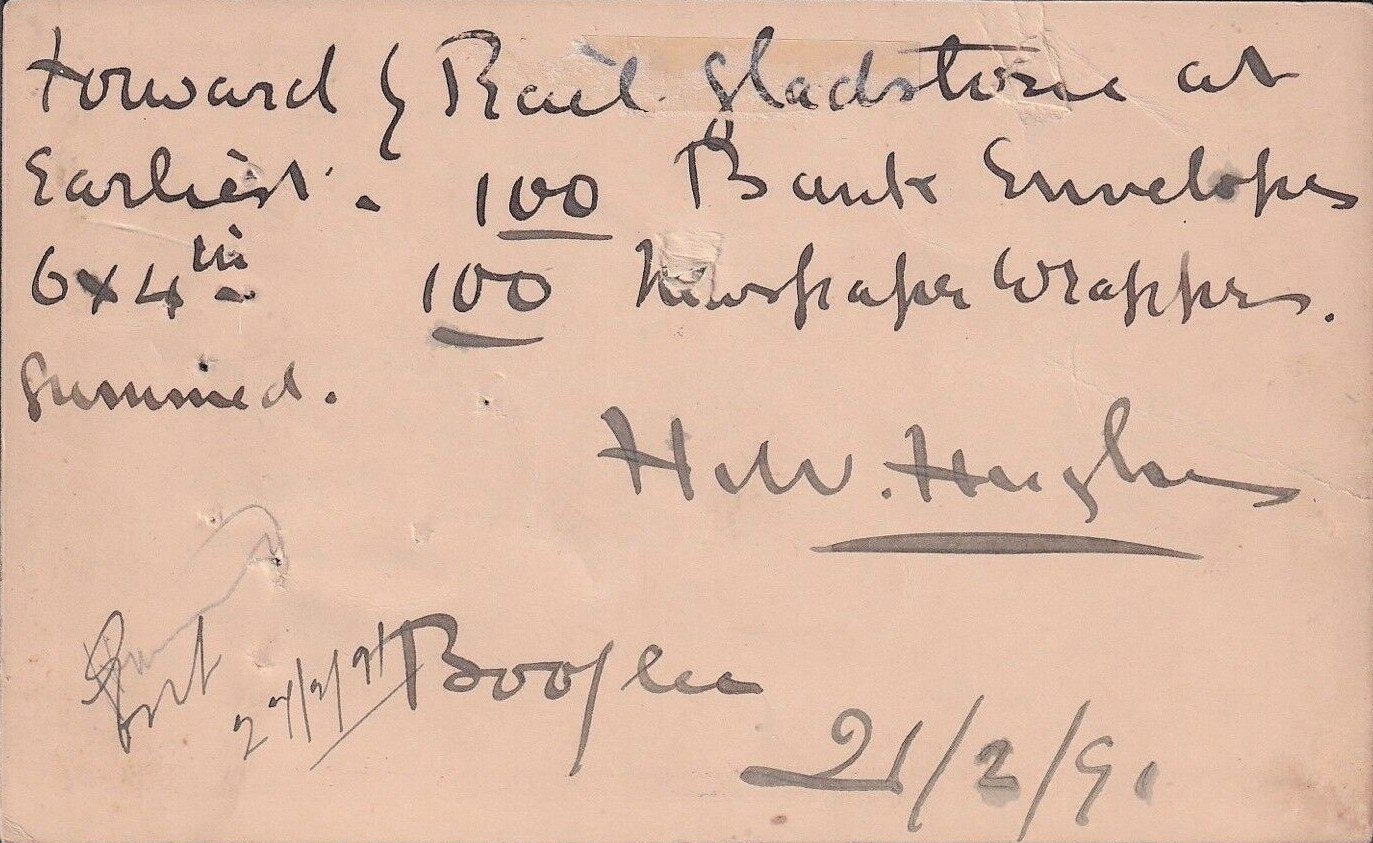 Forward by Rail Gladstone at
Earliest. 100 Bank Envelopes
6x4 in 100 Newspaper Wrappers.
Gummed.
H.W. Hughes
27/2/91
Boolee
21/2/91